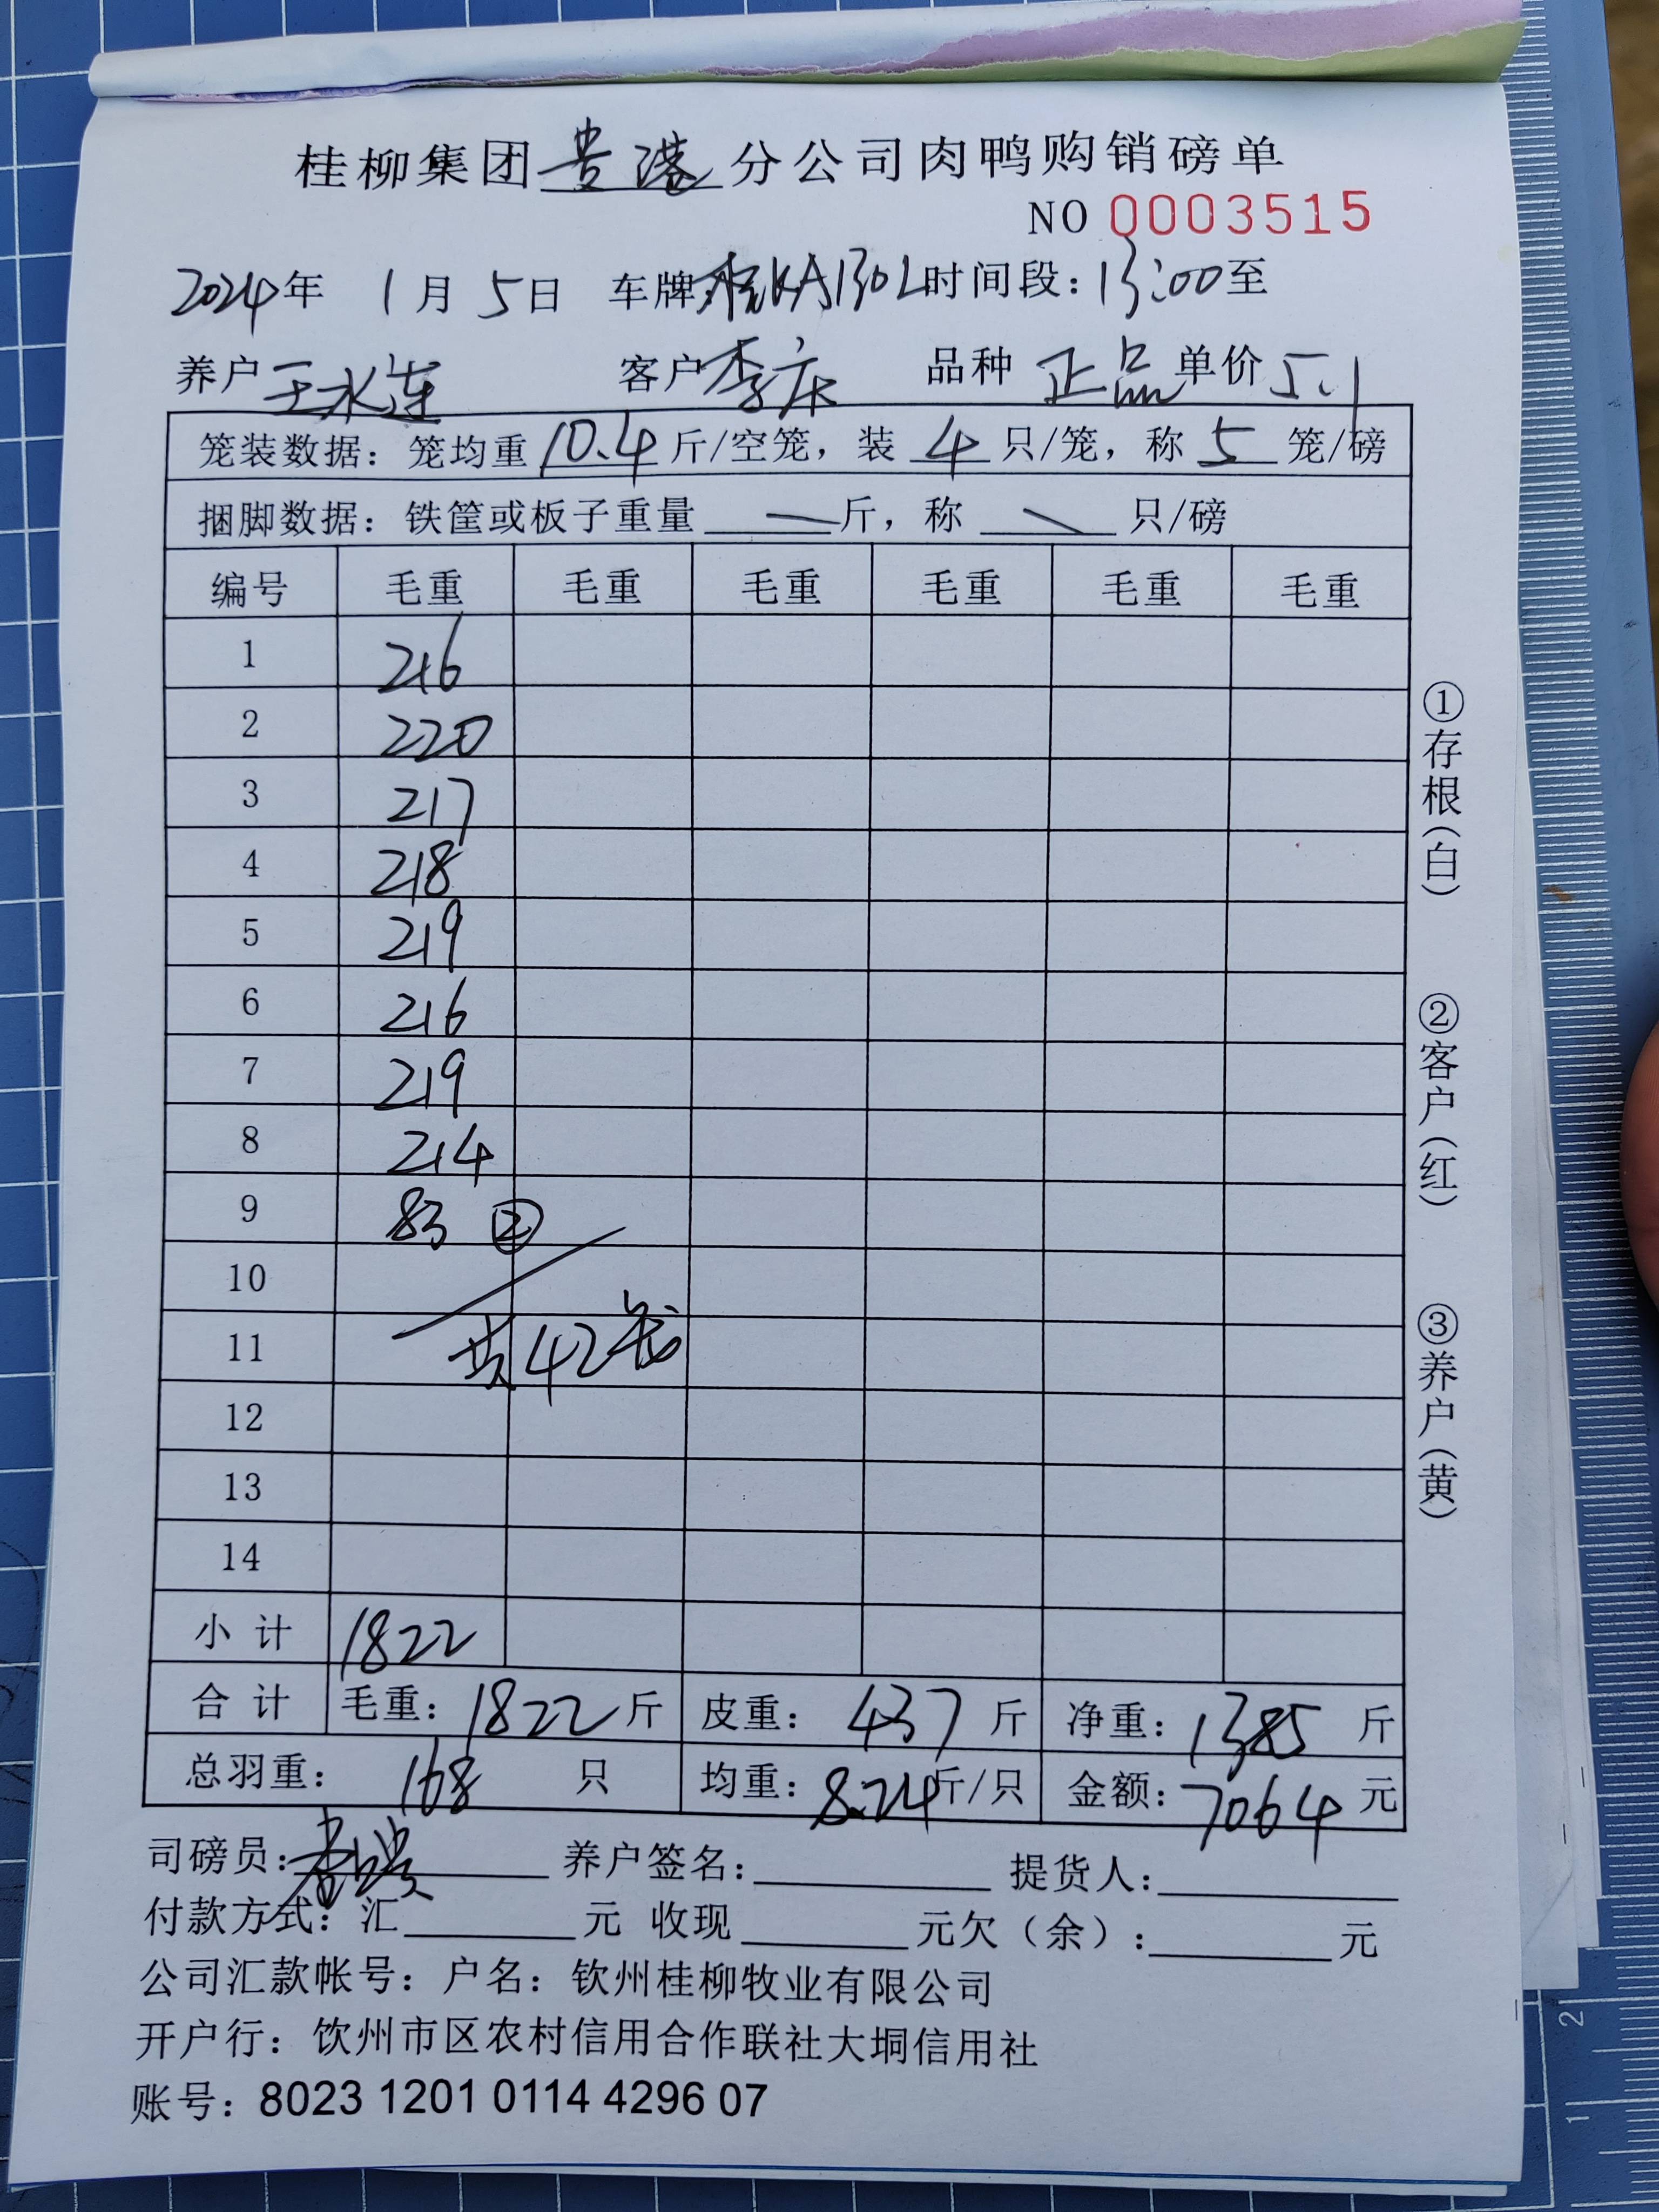 桂柳集团贵港分公司肉鸭购销磅单
NO 0003515
2024年 1月 5日 车牌桂KA130L时间段：13:00至
养户王水连 客户李庆 品种 正品 单价5.1
笼装数据：笼均重10.4斤/空笼，装4只/笼，称5笼/磅
捆脚数据：铁筐或板子重量 — 斤，称 \ 只/磅
编号 毛重 毛重 毛重 毛重 毛重 毛重
1 216
2 220
3 217
4 218
5 219
6 216
7 219
8 214
9 83 ②
10
11 共42笼
12
13
14
小计 1822
合计 毛重：1822斤 皮重：437斤 净重：1385斤
总羽重：168只 均重：8.24斤/只 金额：7064元
司磅员： 养户签名： 提货人：
付款方式：汇 元 收现 元欠（余）： 元
公司汇款帐号：户名：钦州桂柳牧业有限公司
开户行：饮州市区农村信用合作联社大垌信用社
账号：8023 1201 0114 4296 07
①存根（白）
②客户（红）
③养户（黄）
2
1